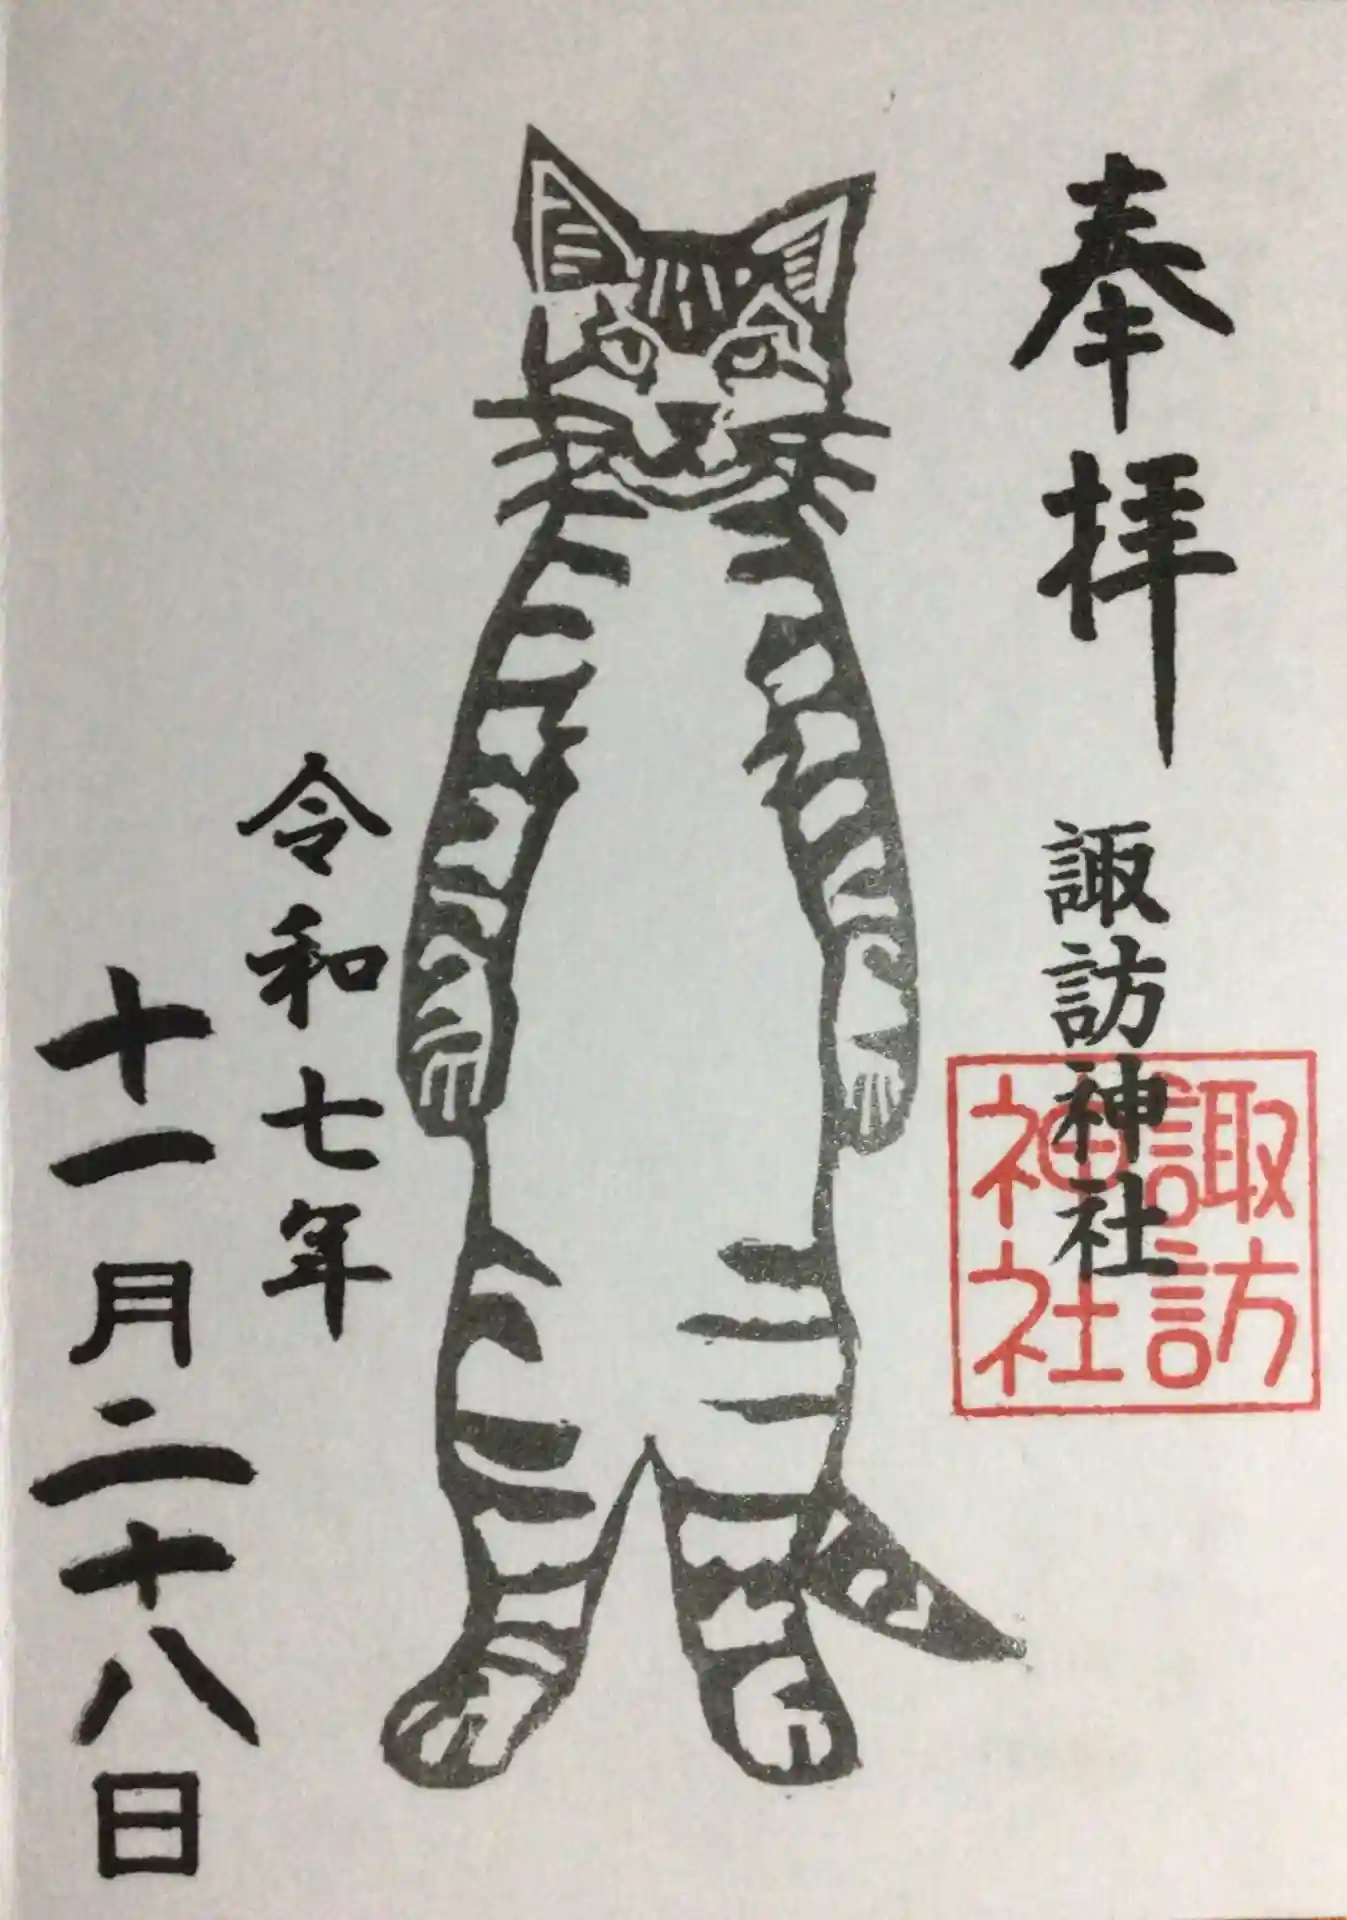 奉拝
諏訪神社
諏訪
神社
令和七年
十一月二十八日